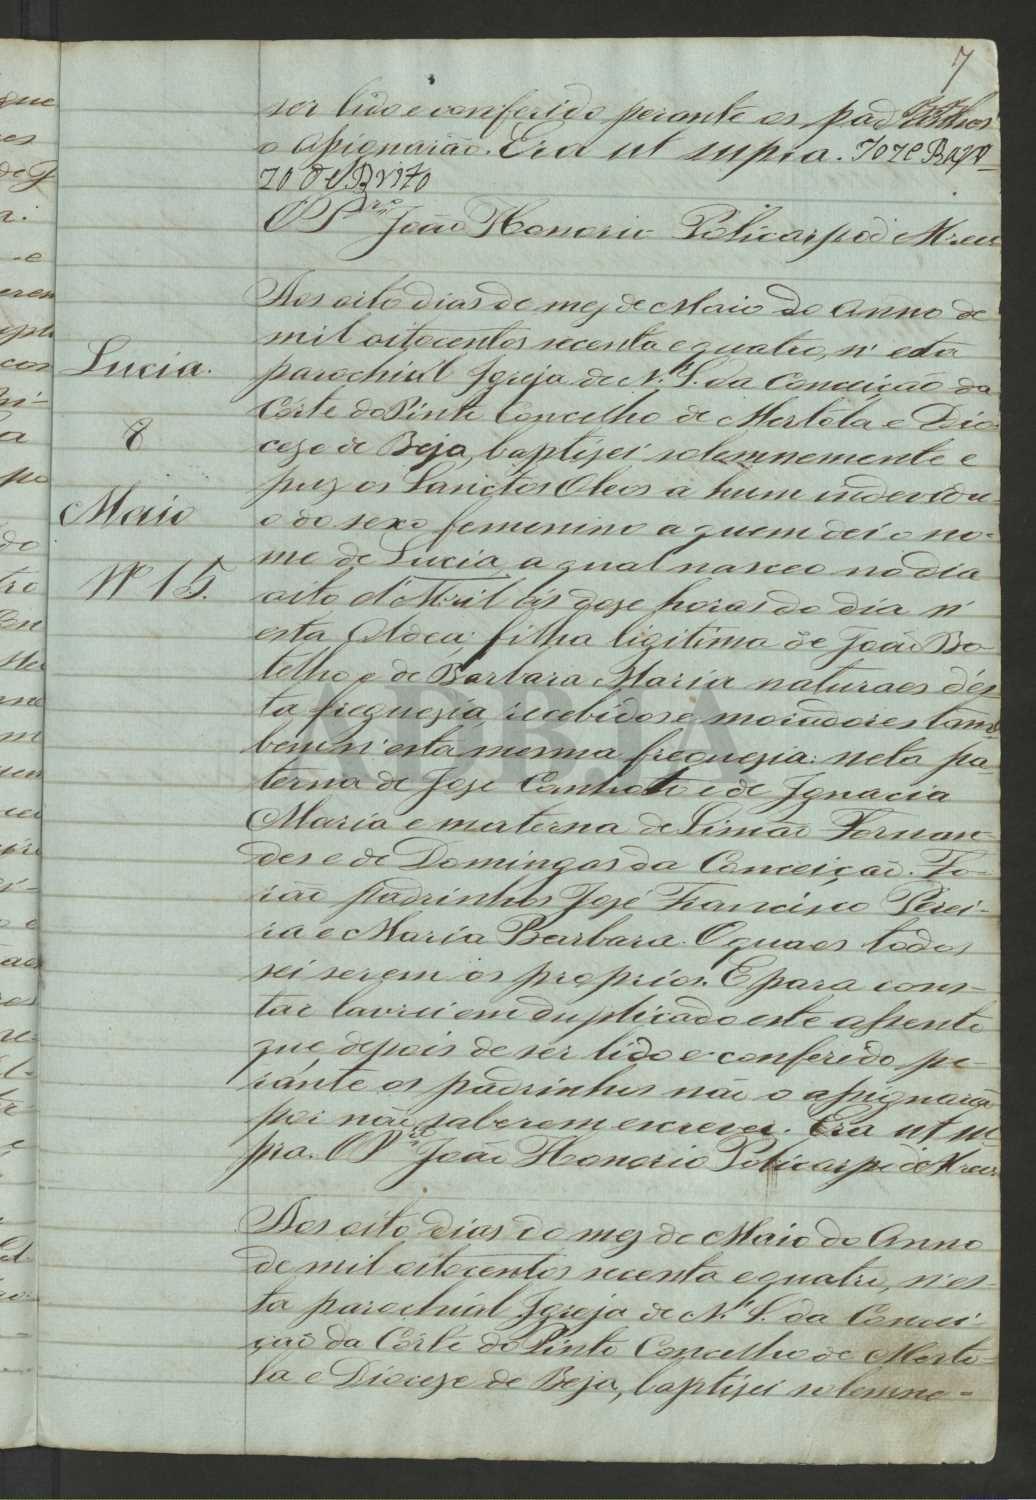 7
ser lido e conferido perante os padrinhos
o assignarão. Era ut supra. Joze Bapt
de Brito
O Pr.e João Honorio Policarpo d'Abreu
Aos oito dias do mez de Maio do Anno de
mil oitocentos secenta e quatro, n'esta
Lucia.
parochial Igreja de N. S. da Conceição da
Côrte do Pinto Concelho de Mertola e Dio
8
ceze de Beja, baptizei solemnemente e
puz os Sanctos Oleos a hum individu-
Maio
o do sexo femenino a quem dei o no-
me de Lucia, a qual nasceo no dia
Nº 15.
oito d'Abril ás doze horas do dia n'
esta Aldea; filha ligitima de João Bo
telho e de Barbara Maria naturaes d'es
ta freguezia, recebidos e moradores tam
bem n'esta mesma freguezia: neta pa
terna de Joze Canhoto e de Ignacia
Maria e materna de Simão Fernan-
des e de Domingas da Conceição. Fo-
rão padrinhos José Francisco Perei-
ra e Maria Barbara. O quaes todos
sei serem os proprios. E para cons-
tar lavrei em duplicado este assento
que, depois de ser lido e conferido pe-
rante os padrinhos não o assignarão
por não saberem escrever. Era ut su
pra. O Pr.e João Honorio Policarpo d'Abreu
Aos oito dias do mez de Maio do Anno
de mil oitocentos secenta e quatro, n'es-
ta parochial Igreja de N. S. da Concei-
ção da Côrte do Pinto Concelho de Merto-
la e Dioceze de Beja, baptizei solemne-
ADBJA